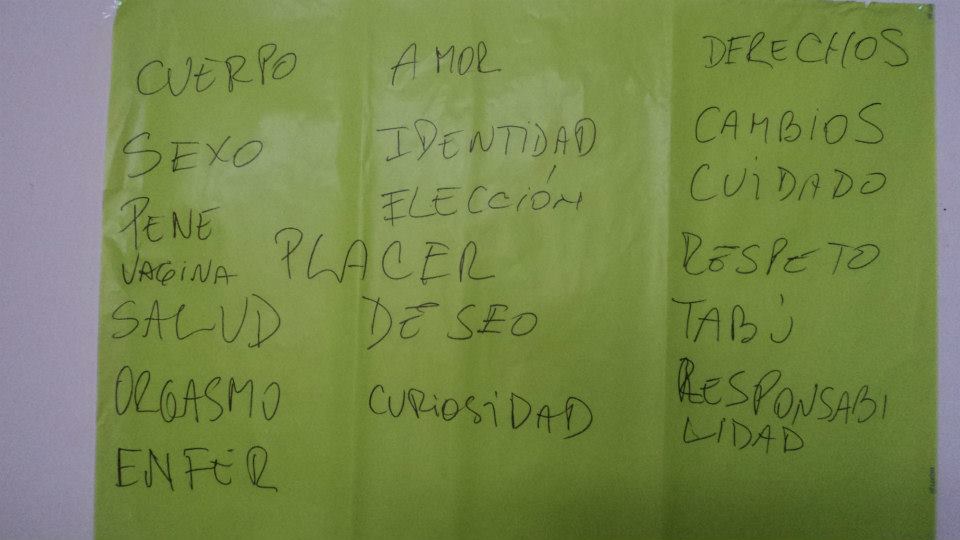 CUERPO
SEXO
PENE
VAGINA
SALUD
ORGASMO
ENFER
AMOR
IDENTIDAD
ELECCIÓN
PLACER
DESEO
CURIOSIDAD
DERECHOS
CAMBIOS
CUIDADO
RESPETO
TABÚ
RESPONSABI
LIDAD